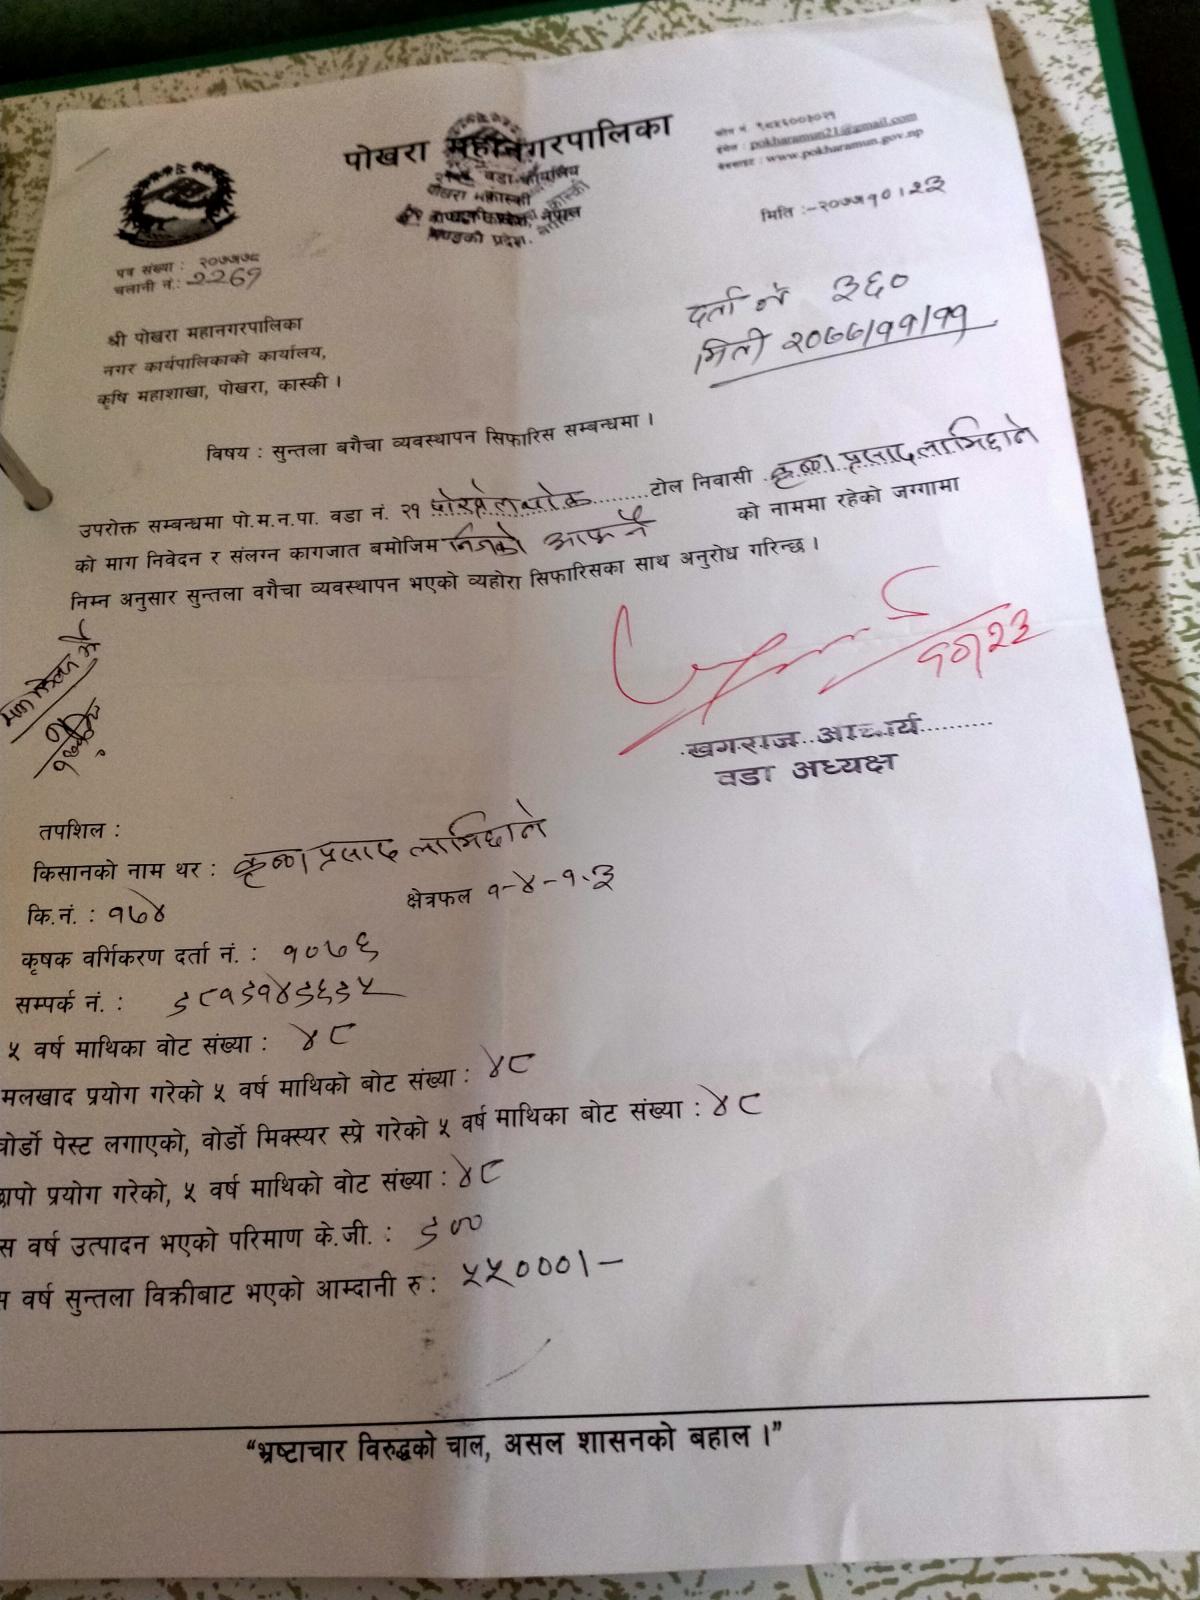 पोखरा महानगरपालिका
२१ नं. वडा कार्यालय
पोखरा कास्की
गण्डकी प्रदेश, नेपाल
फोन नं
इमेल : pokharamun21@gmail.com
वेबसाइट : www.pokharamun.gov.np
मिति :-२०७७।१०।२३
पत्र संख्या : २०७७।७८
चलानी नं.: 2269
दर्ता नं ३६०
मिती २०७७/११/११
श्री पोखरा महानगरपालिका
नगर कार्यपालिकाको कार्यालय,
कृषि महाशाखा, पोखरा, कास्की ।
विषय : सुन्तला बगैचा व्यवस्थापन सिफारिस सम्बन्धमा ।
उपरोक्त सम्बन्धमा पो.म.न.पा. वडा नं. २१ ........ टोल निवासी कृष्ण प्रसाद लामिछाने
को माग निवेदन र संलग्न कागजात बमोजिम निजको आफ्नै को नाममा रहेको जग्गामा
निम्न अनुसार सुन्तला वगैचा व्यवस्थापन भएको व्यहोरा सिफारिसका साथ अनुरोध गरिन्छ ।
१०/२३
खगराज आचार्य
वडा अध्यक्ष
तपशिल :
किसानको नाम थर : कृष्ण प्रसाद लामिछाने
कि.नं. : १७४ क्षेत्रफल १-४-१.३
कृषक वर्गिकरण दर्ता नं. : १०७६
सम्पर्क नं. : ९८१९१४९६९५
५ वर्ष माथिका वोट संख्या : ४८
मलखाद प्रयोग गरेको ५ वर्ष माथिको बोट संख्या : ४८
वोर्डो पेस्ट लगाएको, वोर्डो मिक्स्यर स्प्रे गरेको ५ वर्ष माथिका बोट संख्या : ४८
छापो प्रयोग गरेको, ५ वर्ष माथिको वोट संख्या : ४८
स वर्ष उत्पादन भएको परिमाण के.जी. : ९००
स वर्ष सुन्तला विक्रीबाट भएको आम्दानी रु : ५५०००।-
“भ्रष्टाचार विरुद्धको चाल, असल शासनको बहाल ।”